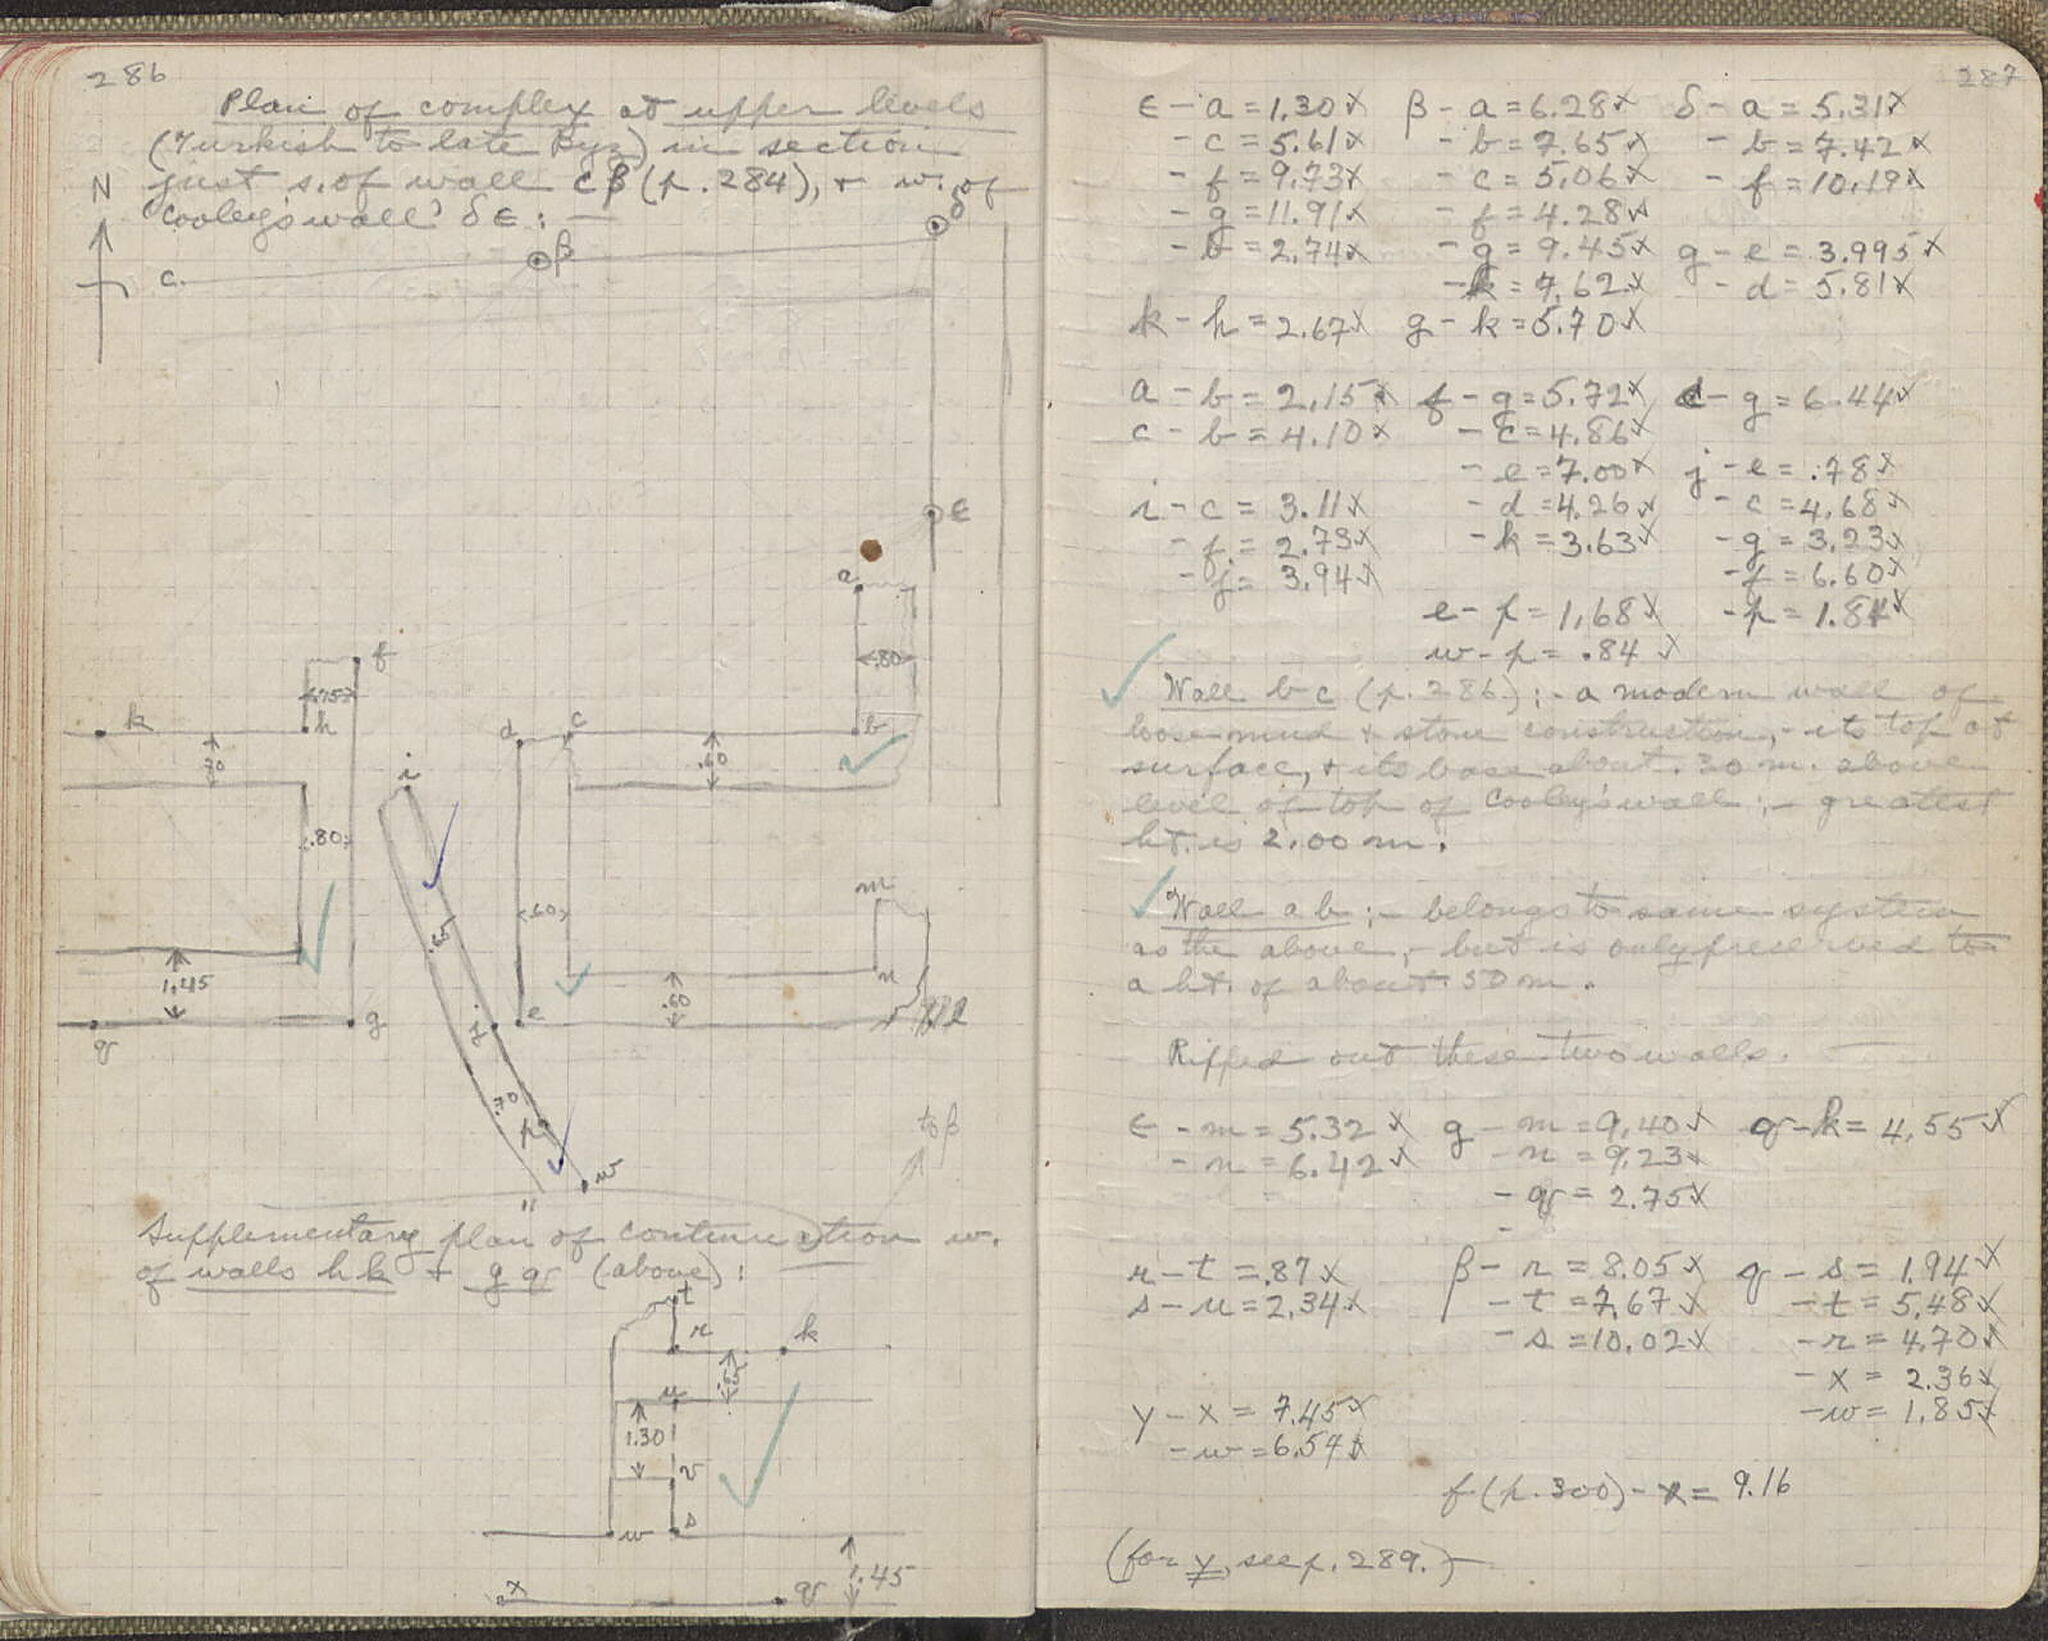 286
Plan of complex at upper levels
(Turkish to late Byz) in section
just s. of wall cβ (p. 284), + w. of
Cooley's wall δϵ : —
N
δ
β
c
ϵ
a
f
.80
.75
k
h
d
c
b
i
.70
.60
.80
m
.60
.65
n
1.45
.60
g
q
j
e
.70
p
to β
w
Supplementary plan of continuation w.
of walls hk + gq (above) :
t
r
k
u
1.30
v
w
s
1.45
x
q
287
ϵ - a = 1.30 x β - a = 6.28 x δ - a = 5.31 x
- c = 5.61 x - b = 7.65 x - b = 7.42 x
- f = 9.73 x - c = 5.06 x - f = 10.19 x
- g = 11.91 x - f = 4.28 x
- b = 2.74 x - g = 9.45 x g - e = 3.995 x
- k = 7.62 x - d = 5.81 x
k - h = 2.67 x g - k = 5.70 x
a - b = 2.15 x f - g = 5.72 x d - g = 6.44 x
c - b = 4.10 x - c = 4.86 x
- e = 7.00 x j - e = .78 x
i - c = 3.11 x - d = 4.26 x - c = 4.68 x
- f = 2.73 x - k = 3.63 x - g = 3.23 x
- j = 3.94 x - f = 6.60 x
e - p = 1.68 x - p = 1.84 x
w - p = .84 x
Wall bc (p. 286) ; - a modern wall of
loose mud + stone construction, - its top at
surface, + its base about .30 m. above
level of top of Cooley's wall ; - greatest
ht. is 2.00 m.
Wall ab ; - belongs to same system
as the above, - but is only preserved to
a ht. of about .50 m.
Ripped out these two walls.
ϵ - m = 5.32 x g - m = 9.40 x q - k = 4.55 x
- n = 6.42 x - n = 9.23 x
- q = 2.75 x
-
r - t = .87 x β - r = 8.05 x q - s = 1.94 x
s - u = 2.34 x - t = 7.67 x - t = 5.48 x
- s = 10.02 x - r = 4.70 x
- x = 2.36 x
y - x = 7.45 x - w = 1.85 x
- w = 6.54 x
f (p. 300) - x = 9.16
(for y, see p. 289.) —